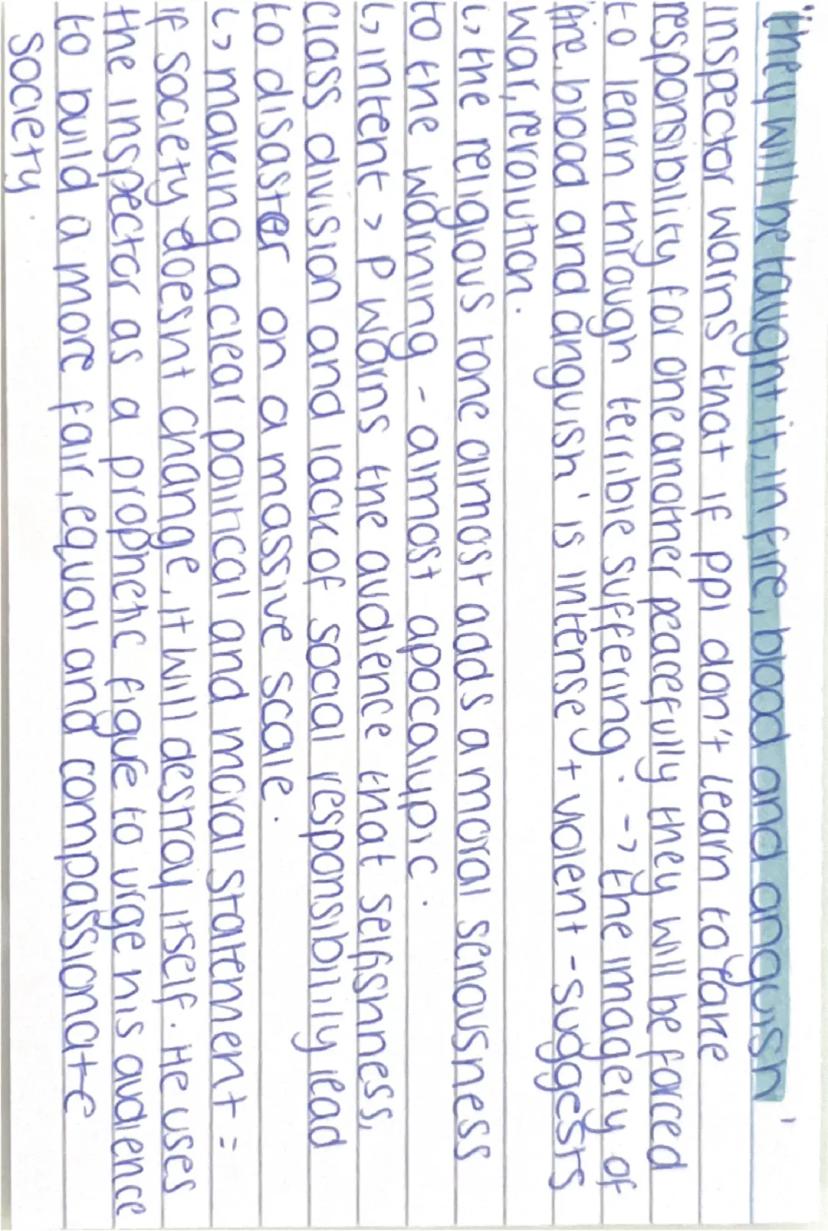 "they will be taught it, in fire, blood and anguish'
inspector warns that if ppl don't learn to take
responsibility for one another peacefully they will be forced
to learn through terrible suffering. -> the imagery of
fire, blood and anguish' is intense + violent - suggests
war, revolution.
↳ the religious tone almost adds a moral seriousness
to the warning - almost apocalypic.
↳ intent > P warns the audience that selfishness,
class division and lack of social responsibility lead
to disaster on a massive scale.
↳ making a clear political and moral statement =
if society doesnt change, it will destroy itself. He uses
the inspector as a prophetic figure to urge his audience
to build a more fair, equal and compassionate
society.